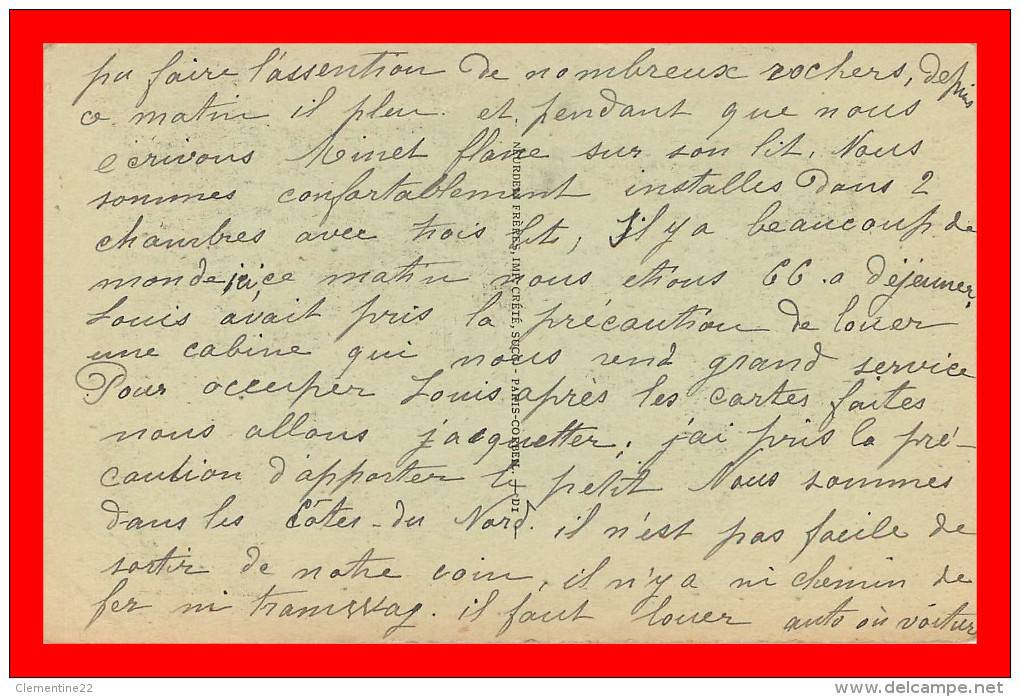 pu faire l'assention de nombreux rochers, depuis
ce matin il pleu. et pendant que nous
ecrivons Minet flane sur son lit. Nous
sommes confortablement installes dans 2
chambres avec trois lits, Il y a beaucoup de
monde ici, ce matin nous etions 66 a déjeuner,
Louis avait pris la précaution de louer
une cabine qui nous rend grand service
Pour occuper Louis après les cartes faites
nous allons jacquetter, j'ai pris la pré-
caution d'apporter le petit Nous sommes
dans les Côtes-du Nord. il n'est pas facile de
sortir de notre coin, il n'y a ni chemin de
fer ni tramwag. il faut louer auto où voitur
NEURDEIN FRÈRES, IMP. CRÉTÉ, SUCC. - PARIS-CORBEIL.
Clementine22
delcampe.net